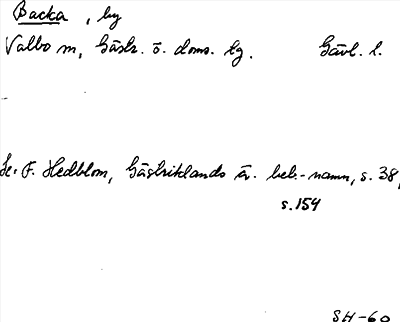 Backa, by
Valbo sn, Gästr. ö. doms. tg. Gävl. l.
Se: F. Hedblom, Gästriklands äv. beb.-namn, s. 38,
s. 154
SH-60